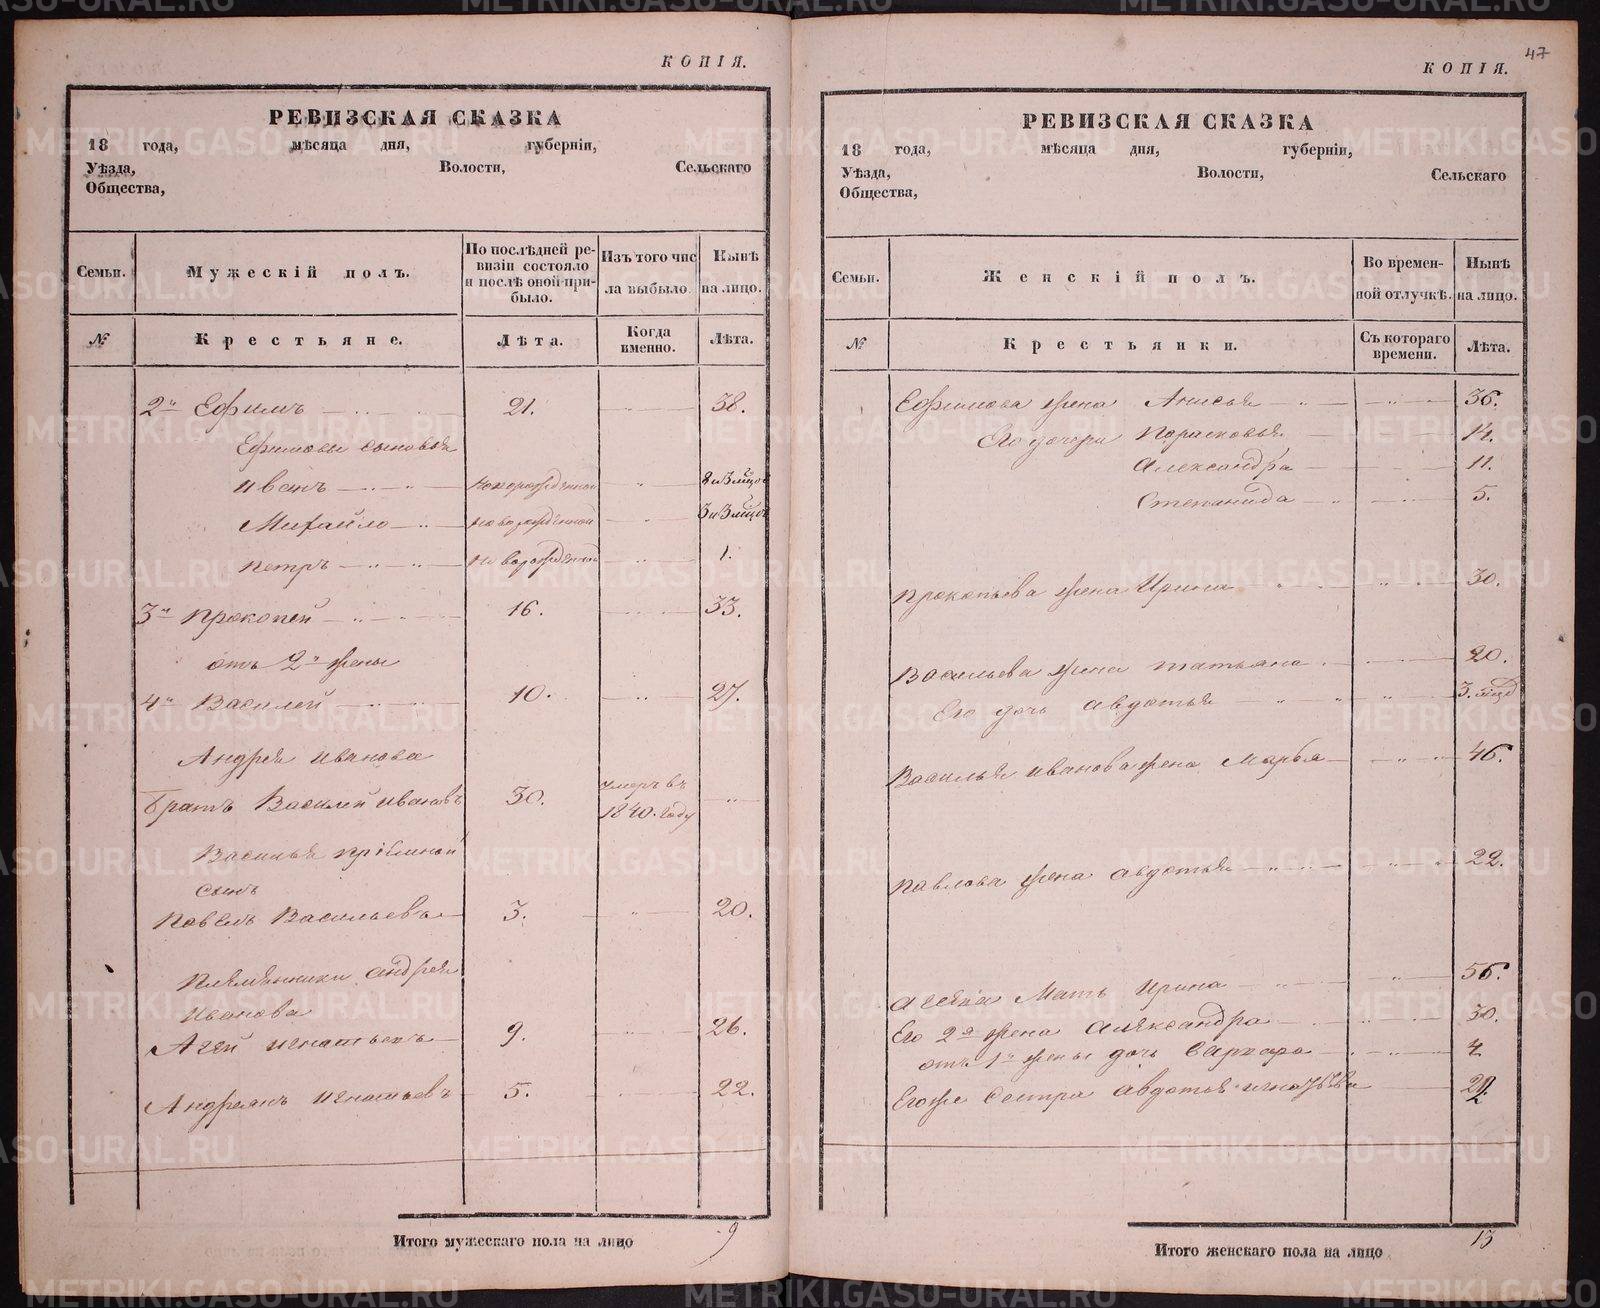 КОПІЯ.
РЕВИЗСКАЯ СКАЗКА
18 года, мѣсяца дня, губерніи,
Уѣзда, Волости, Сельскаго
Общества,
Семьи. Мужескій полъ. По послѣдней ревизіи состояло и послѣ оной прибыло. Изъ того числа выбыло. Нынѣ на лицо.
№ Крестьяне. Лѣта. Когда именно. Лѣта.
2й Ефимъ 21. 38.
Ефимовы сыновья
Иванъ новорожденной 8 и 3 мѣцов
Михайло новорожденной 3 и 3 мѣцов
Петръ новорожденной 1.
3й Прокопей 16. 33.
отъ 2й жены
4й Василей 10. 27.
Андрея Иванова
Братъ Василей Ивановъ 30. умеръ въ 1840. году
Василья пріемной
сынъ
Павелъ Васильевъ 3. 20.
Племянники Андрея
Иванова
Агей Игнатьевъ 9. 26.
Андреянъ Игнатьевъ 5. 22.
Итого мужескаго пола на лицо 9
47
КОПІЯ.
РЕВИЗСКАЯ СКАЗКА
18 года, мѣсяца дня, губерніи,
Уѣзда, Волости, Сельскаго
Общества,
Семьи. Женскій полъ. Во временной отлучкѣ. Нынѣ на лицо.
№ Крестьянки. Съ котораго времени. Лѣта.
Ефимова жена Анисья 36.
Его дочери Парасковья 14.
Александра 11.
Степанида 5.
Прокопьева жена Ирина 30.
Васильева жена Татьяна 20.
Его дочь Авдотья 3. мѣц
Василья Иванова жена Марья 46.
Павлова жена Авдотья 22.
Агейка Мать Ирина 56.
Его 2я жена Александра 30.
отъ 1й жены дочь Варвара 4
Егоже Сестра Авдотья Игнатьева
Итого женскаго пола на лицо 13
METRIKI.GASO-URAL.RU